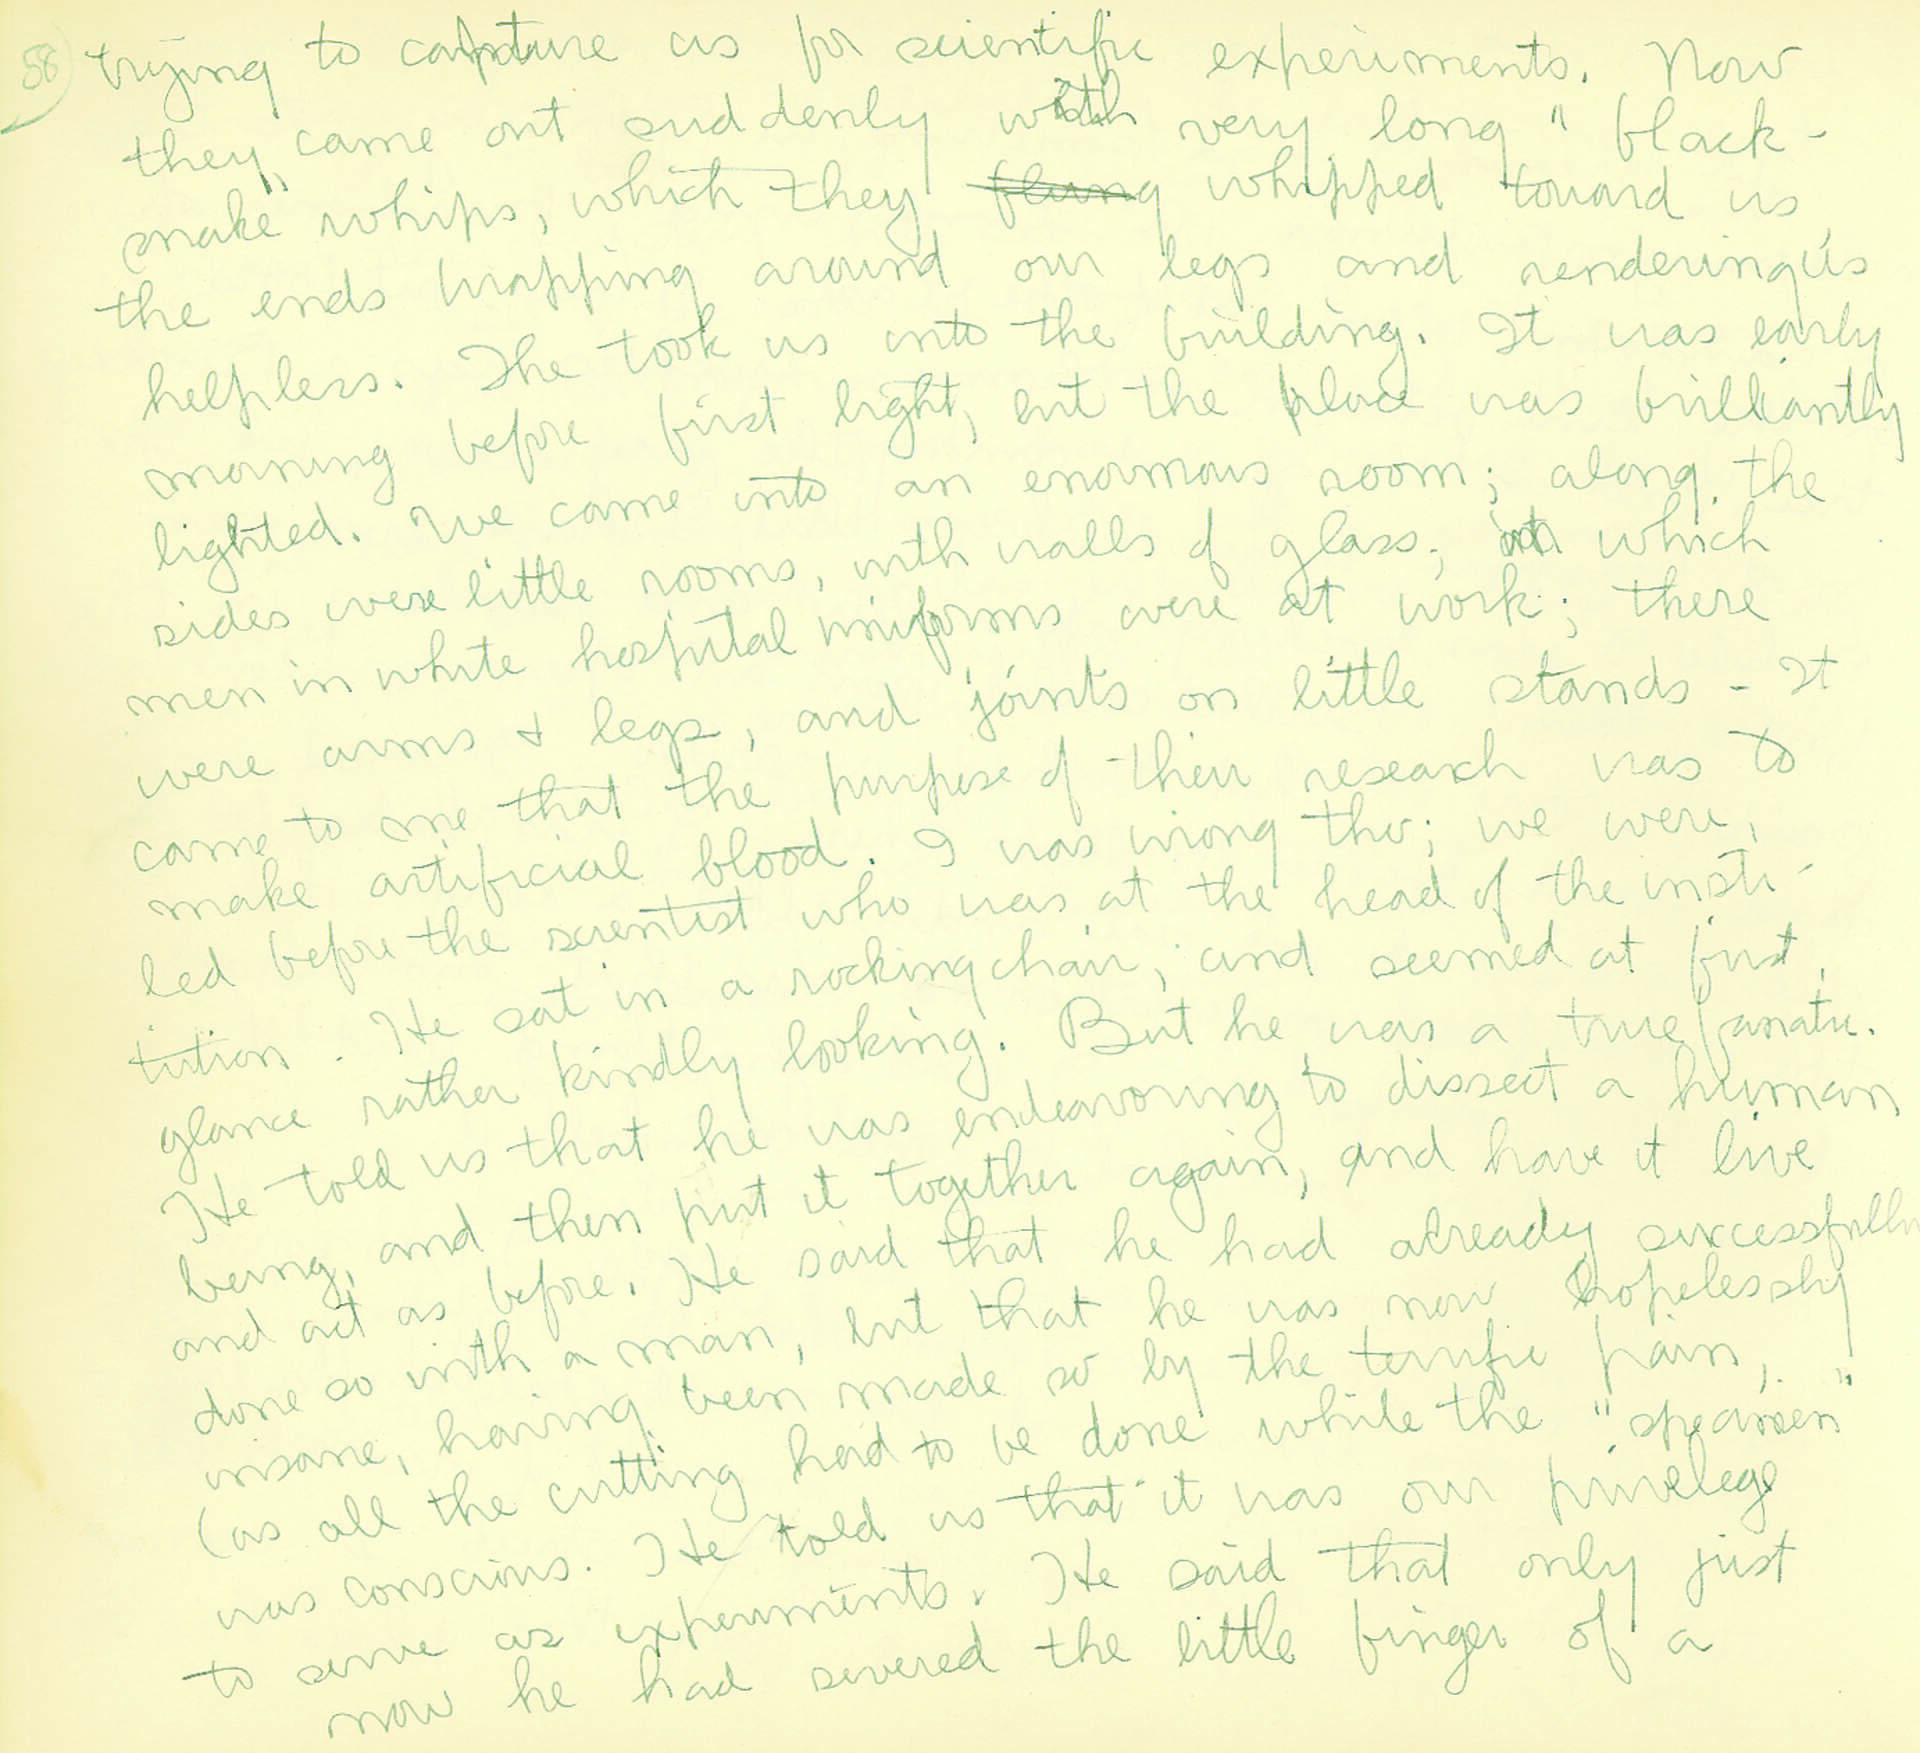 58
trying to capture us for scientific experiments. Now
they came out suddenly with very long "black-
snake" whips, which they flung whipped toward us,
the ends wrapping around our legs and rendering us
helpless. The took us into the building. It was early
morning before first light, but the place was brilliantly
lighted. We came into an enormous room; along the
sides were little rooms, with walls of glass, in which
men in white hospital uniforms were at work; there
were arms & legs, and joints on little stands - It
came to me that the purpose of their research was to
make artificial blood. I was wrong tho; we were,
led before the scientist who was at the head of the insti-
tution. He sat in a rocking chair, and seemed at first
glance rather kindly looking. But he was a true fanatic.
He told us that he was endeavoring to dissect a human
being, and then put it together again, and have it live
and act as before. He said that he had already successfully
done so with a man, but that he was now hopelessly
insane, having been made so by the terrific pain,
(as all the cutting had to be done while the "specimen"
was conscious. He told us that it was our privelege
to serve as experiments. He said that only just
now he had severed the little finger of a